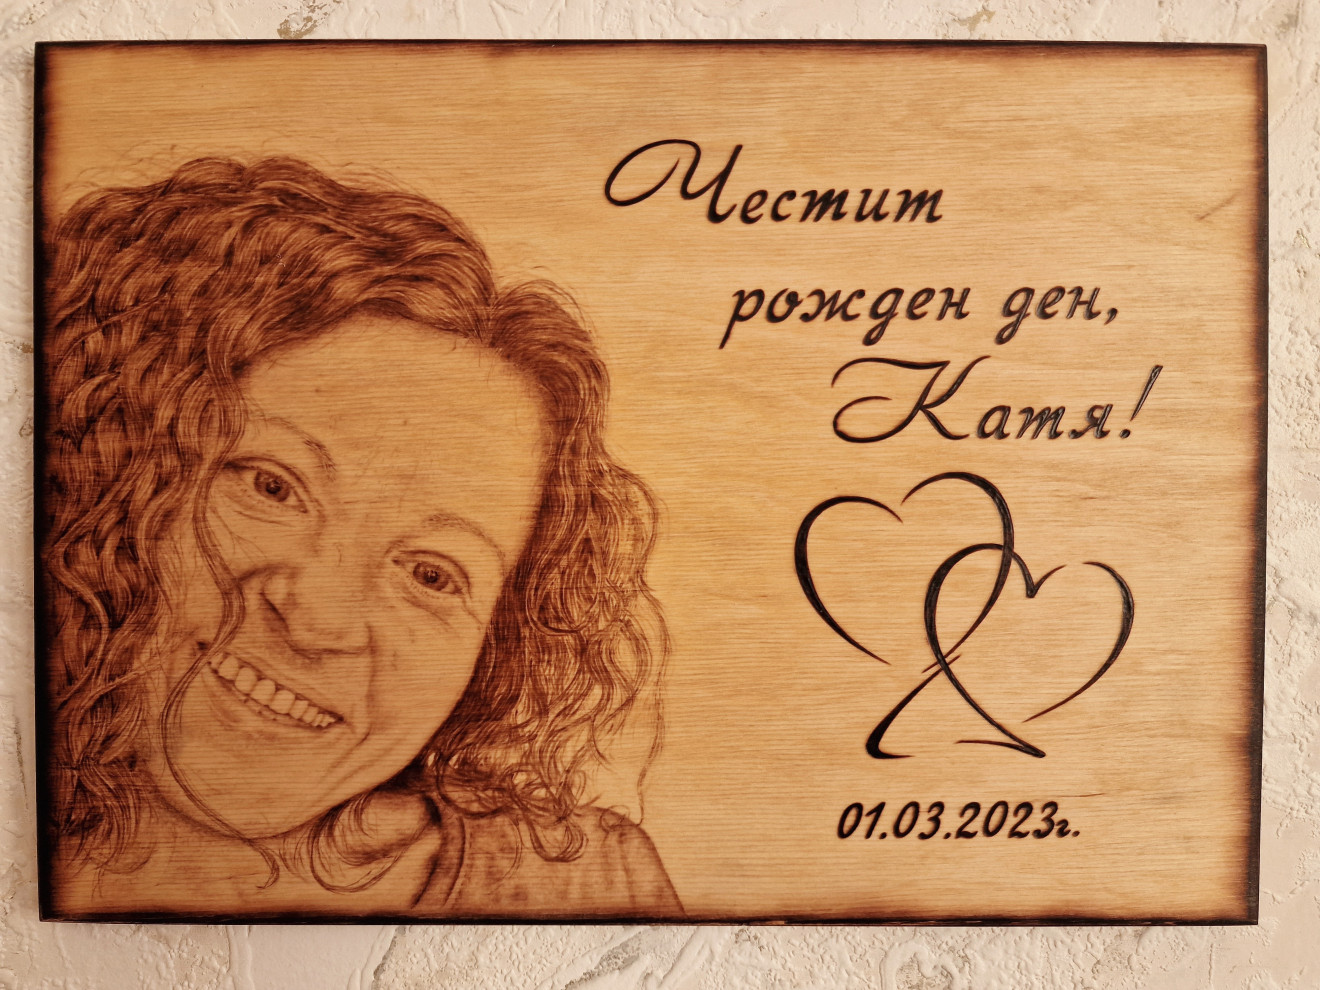 Честит
рожден ден,
Катя!
01.03.2023г.